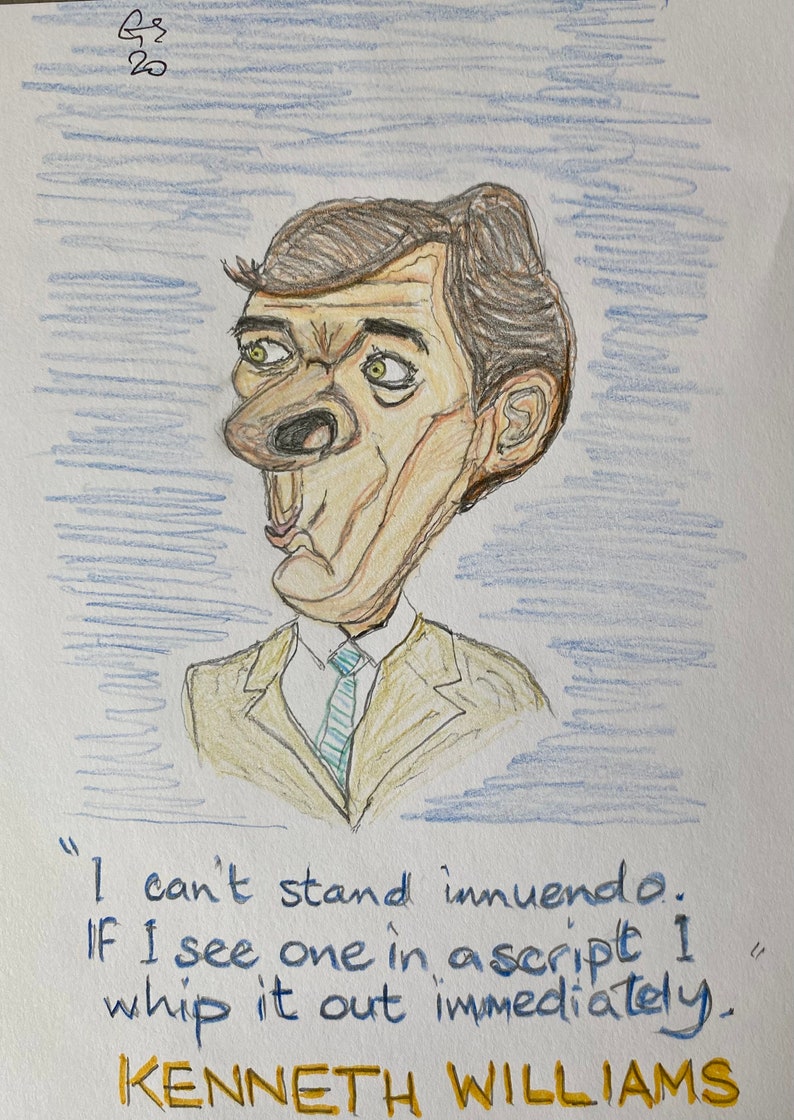 20
"I can't stand innuendo.
If I see one in a script I
whip it out immediately."
KENNETH WILLIAMS